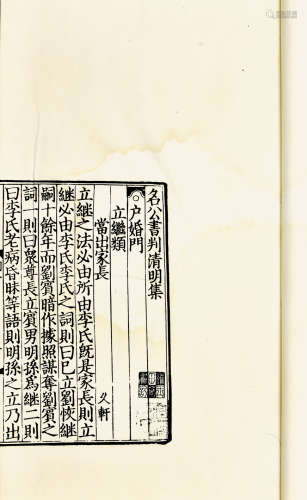 名公書判清明集
戶婚門
立繼類
當出家長
久軒
立繼之法必由所由李氏既是家長則立
繼必由李氏李氏之詞則曰已立劉恢繼
嗣十餘年而劉賓暗作據照謀奪劉賓之
詞一則曰眾尊長立賓男明孫為繼二則
曰李氏老病昏昧等語則明孫之立乃出